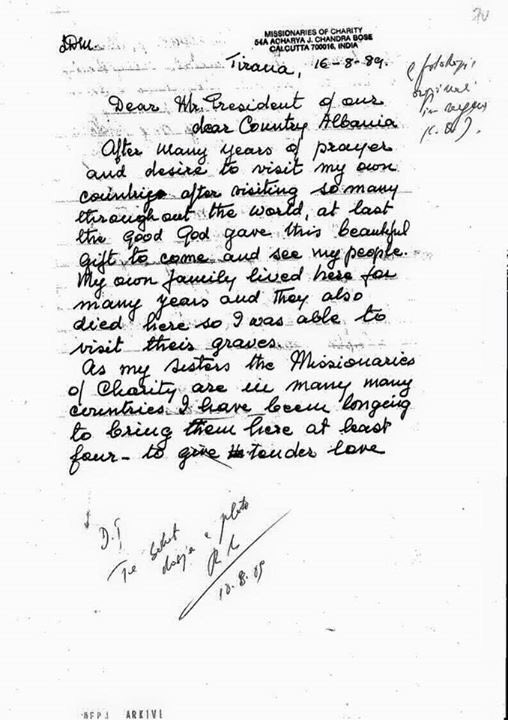 LDM.
MISSIONARIES OF CHARITY
54A ACHARYA J. CHANDRA BOSE
CALCUTTA 700016, INDIA
Tirana, 16-8-89.
Dear Mr. President of our
dear Country Albania
After many years of prayer
and desire to visit my own
countries after visiting so many
throughout the world, at last
the Good God gave this beautiful
gift to come and see my people.
My own family lived here for
many years and they also
died here so I was able to
visit their graves.
As my Sisters the Missionaries
of Charity are in many many
countries I have been longing
to bring them here at least
four - to give tender love
D.T
R A
ARKIVI